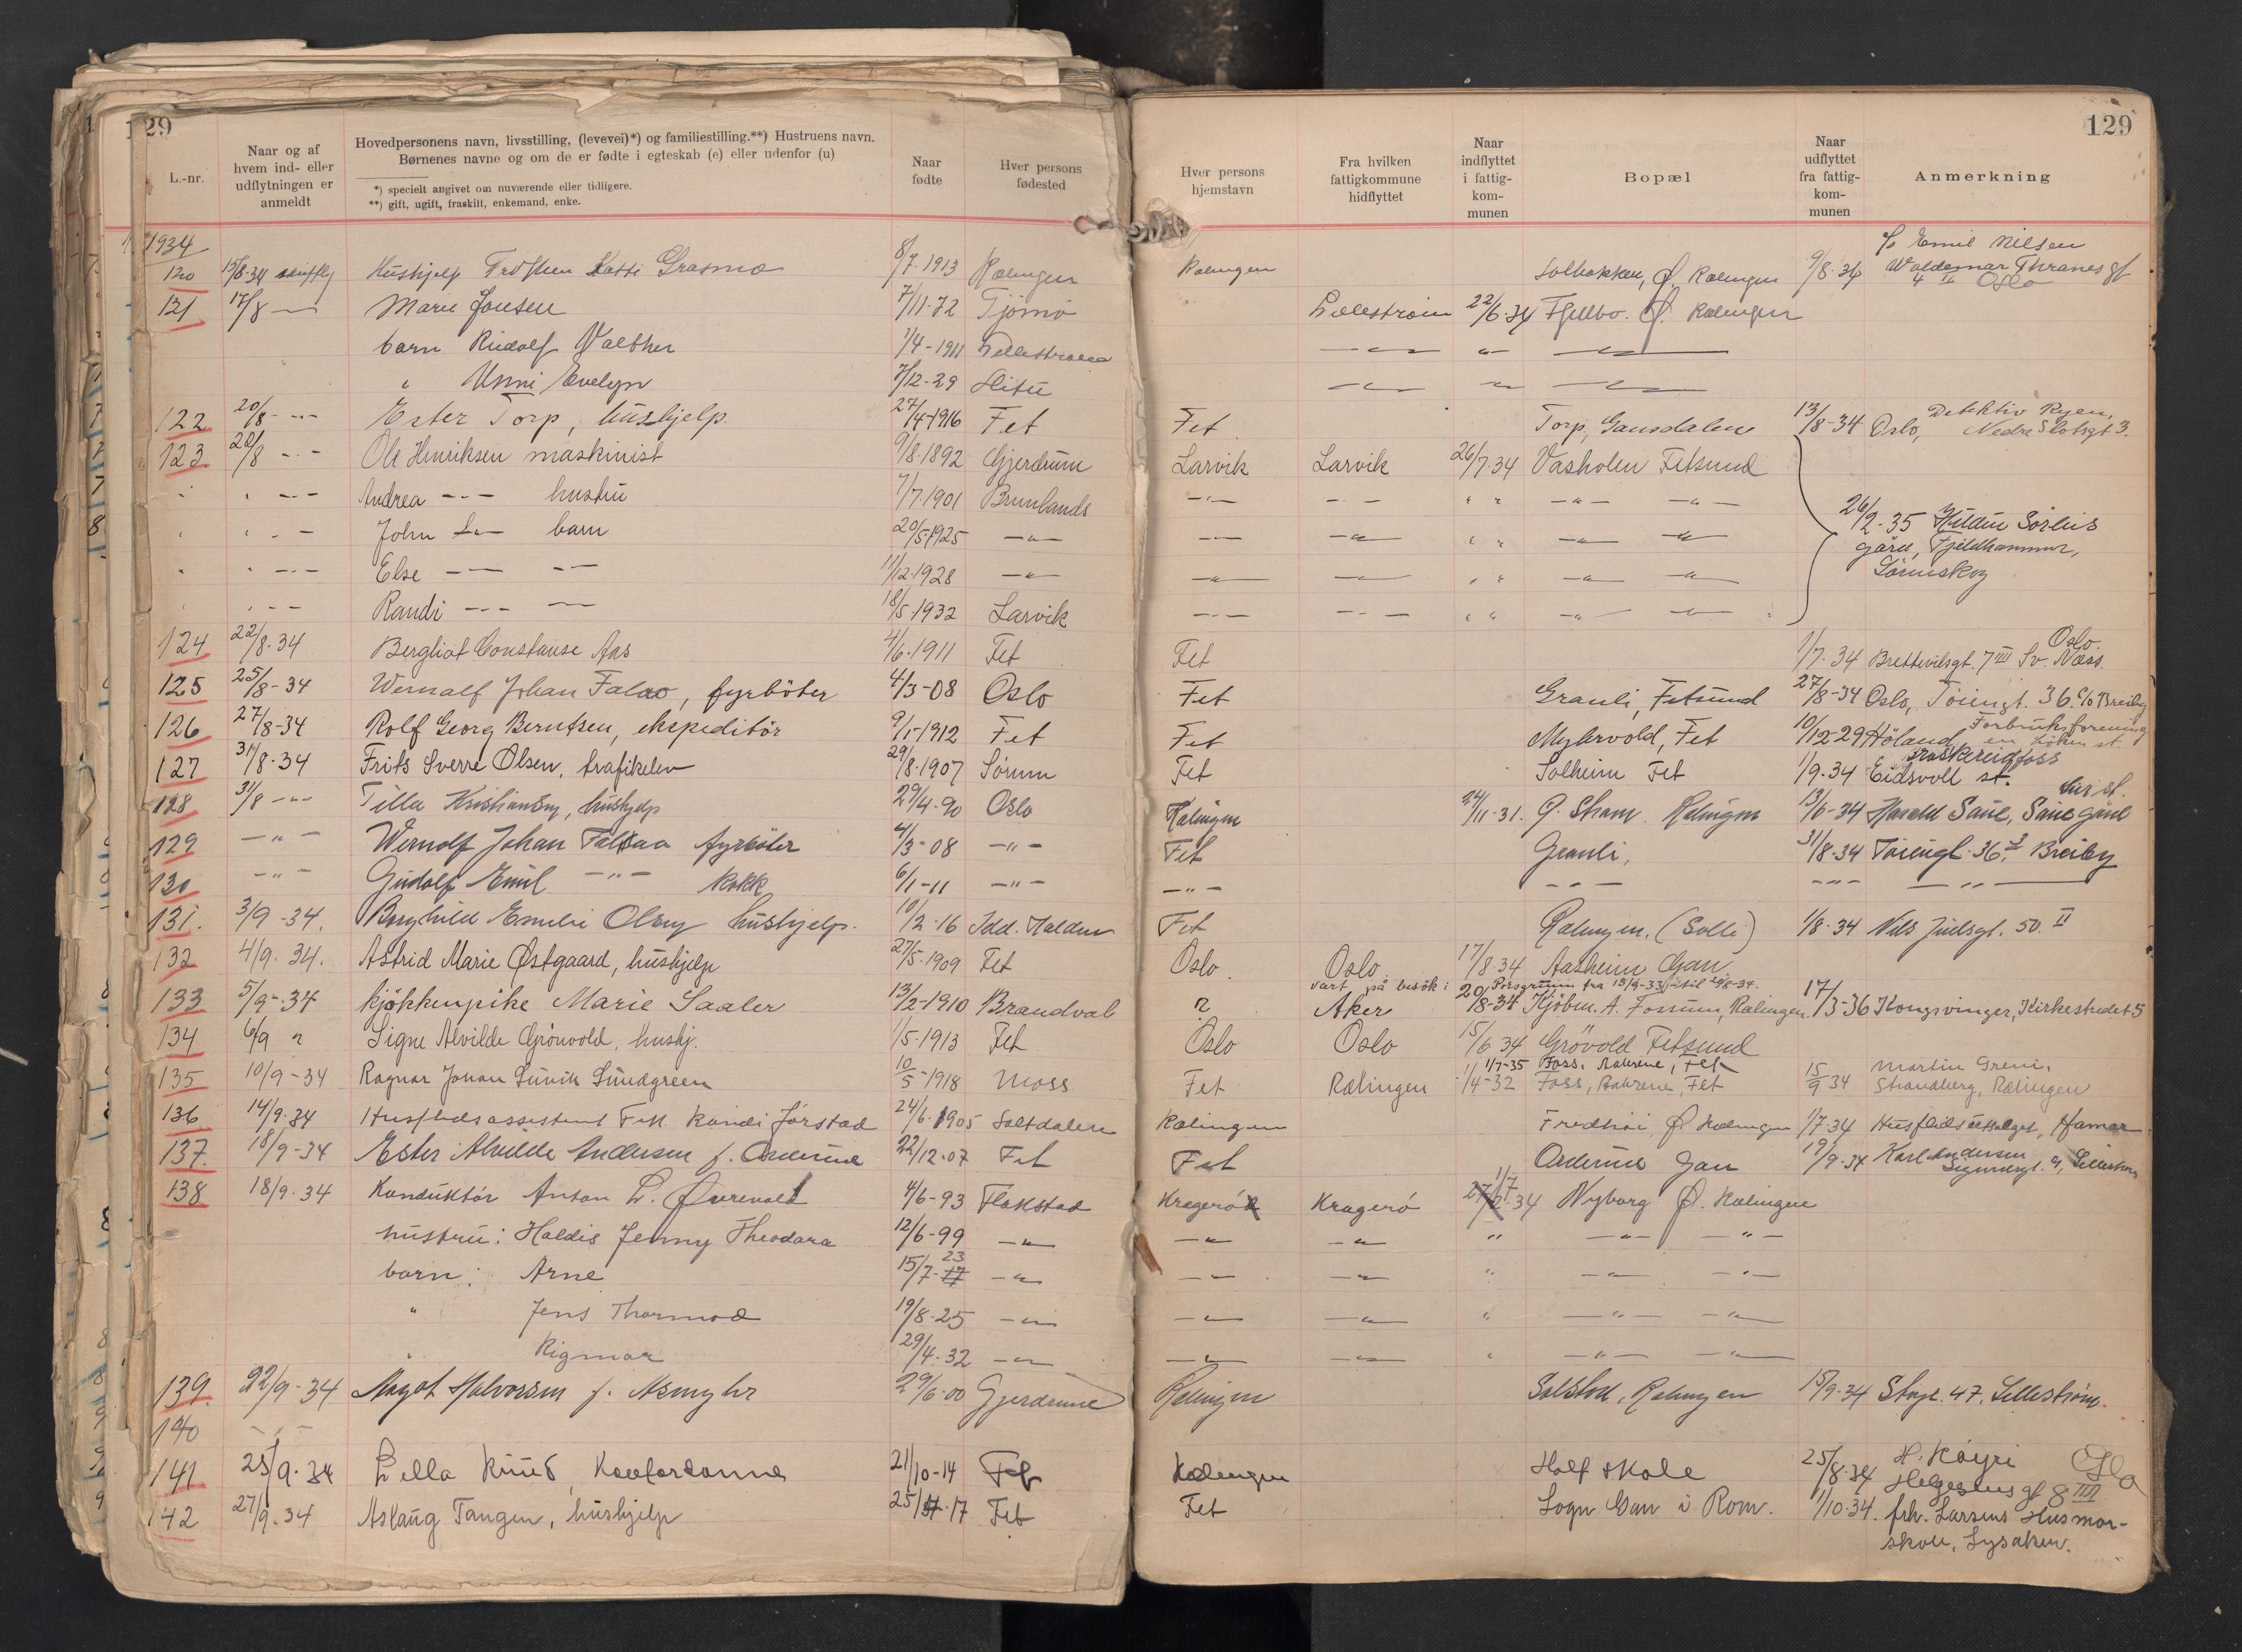 129
129
L.-nr.
Naar og af hvem ind- eller udflytningen er anmeldt
Hovedpersonens navn, livsstilling, (levevei)*) og familiestilling.**) Hustruens navn.
Børnenes navne og om de er fødte i egteskab (e) eller udenfor (u)
*) specielt angivet om nuværende eller tidligere.
**) gift, ugift, fraskilt, enkemand, enke.
Naar fødte
Hver persons fødested
Hver persons hjemstavn
Fra hvilken fattigkommune hidflyttet
Naar indflyttet i fattigkommunen
Bopæl
Naar udflyttet fra fattigkommunen
Anmerkning
1934
120 15/8-34 Hushjelp Grasmo 8/7-1913 Rælingen Rælingen Solbakken, Ø. Rælingen 9/8-34 c/o Emil Nilsen Waldemar Thranes gt 4 II Oslo
121 17/8 — Marie Jonsen 7/11-72 Tjømø Lillestrøm 22/6-34 Fjellbo. Ø. Rælingen
barn Rudolf Walther 1/4-1911 Lillestrøm — " — " — " —
" Unni Evelyn 7/12-29 — " — " — " —
122 20/8 - " - Ester Torp, hushjelp. 27/4-1916 Fet Fet Torp, Gansdalen 13/8-34 Oslo, Detektiv Ryen, Nedre Slotsgt 3.
123 20/8 - " - Ole Henriksen maskinist 9/8-1892 Gjerdrum Larvik Larvik 26/7-34 Vasholen Fetsund
" " - " - Andrea - " - hustru 7/7-1901 Brunlands — " — — " — " " — " — — " —
" " - " - John - " - barn 20/5-1925 — " — — " — — " — " " — " — — " — 26/2-35 gård, Fjeldhammer, Lörenskog
" " - " - Else - " - - " - 11/12-1928 — " — — " — — " — " " — " — — " —
" " - " - Randi - " - - " - 18/5-1932 Larvik — " — — " — " " — " — — " —
124 22/8-34 Bergliot Constanse Aas 4/6-1911 Fet Fet 1/7-34 7 III Sv. Næss. Oslo.
125 25/8-34 Wernolf Johan, fyrbøter 4/3-08 Oslo Fet Granli, Fetsund 27/8-34 Oslo, Töiengt. 36 c/o Breiby
126 27/8-34 Rolf Georg Berntsen, ekspeditør 9/1-1912 Fet Fet Myhrvold, Fet 10/12-29 Höland, Forbruksforening
127 31/8-34 Frits Sverre Olsen, trafikelev 29/8-1907 Sörum Fet Solheim Fet 1/9-34 Eidsvoll st.
128 31/8 - " - Tilla, hushjelp 29/4-90 Oslo Rælingen 24/11-31. Rælingen 13/6-34 Harald Saue, Saue gård
129 - " - Wernolf Johan fyrbøter 4/3-08 - " - Fet Granli, 31/8-34 Töiengt. 36 3 Breiby
130 - " - Gudolf Emil - " - kokk 6/1-11 - " - - " - - " - - " - - " -
131. 3/9-34. Borghild Emelie Olsen hushjelp. 10/2-16 Idd. Halden Fet Rælingen. (Solli) 1/8-34 Nils Juelsgt. 50. II
132 4/9.34. Astrid Marie Østgaard, hushjelp 27/5-1909 Fet Oslo. Oslo 17/8 34 Aasheim Gan.
133 5/9-34 kjøkkenpike Marie Saaler 13/2-1910 Brandval ? Aker vært på besøk i Porsgrunn fra 15/9-33 til 20/8-34. 20/8-34 Kjöbm. A. Fossum, Rælingen. 17/3-36 Kongsvinger, Kirkestredet 5
134 6/9 " Signe Alvilde Grönvold, hushj. 1/5-1913 Fet Oslo Oslo 15/6 34 Grövold Fetsund
135 10/9-34 Ragnar Johan Lundgreen 10/5-1918 Moss Fet Rælingen 11/4-32 Foss, Fet 1/7-35 Foss, Fet 15/9 34 Martin Greni, Strandberg, Rælingen
136 14/9.34 Husflidsassistent Frk. Randi Jørstad 24/6-1905 Saltdalen Rælingen Fredhöi Ø. Rælingen 1/7-34 Husflidsutsalget, Hamar
137. 18/9-34 Ester Alvilde Andersen f. Orderud 22/12-07 Fet Fet Orderud Gan 19/9-34 Karl Andersen Lillestrøm
138 18/9.34 Konduktør Anton L. Øvrevoll 4/6-93 Flakstad Kragerö Kragerö 1/7 34 Nyborg Ø. Rælingen
hustru: Haldis Jenny Theodora 12/6-99 — " — — " — — " — " — " — — " —
barn: Arne 15/7-23 — " — — " — — " — " — " — — " —
" Jens Thormod 19/8-25 — " — — " — — " — " — " — — " —
" Rigmor 29/4-32 — " — — " — — " — " — " — — " —
139. 22/9-34 Magot Halvorsen f. Asmyhr 29/6-00 Gjerdrum Rælingen Solstad, Rælingen 15/9-34 Storgt. 47. Lillestrøm.
140 - " -
141 25/9-34 Lella Ruud 21/10-14 Fet Rælingen Holt skole 25/8-34 gt 8 III Oslo
142 27/9.34 Aslaug Tangen, hushjelp 25/-17 Fet Fet Sogn Gan i Rom. 1/10-34. frk. Larsens Husmorskole, Lysaker.